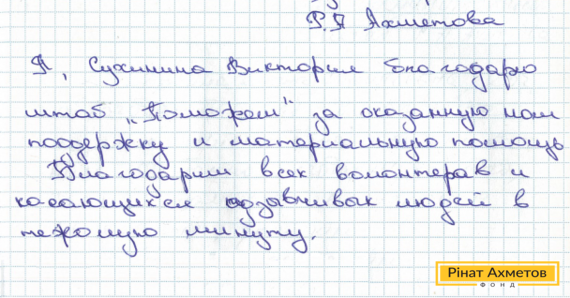 Р.Л Ахметова
Я, Сухинина Виктория благодарю
штаб „Поможем" за оказанную нам
поддержку и материальную помощь
Благодарим всех волонтерав и
касающихся отзывчивых людей в
тежолую минуту.
Рінат Ахметов
ФОНД